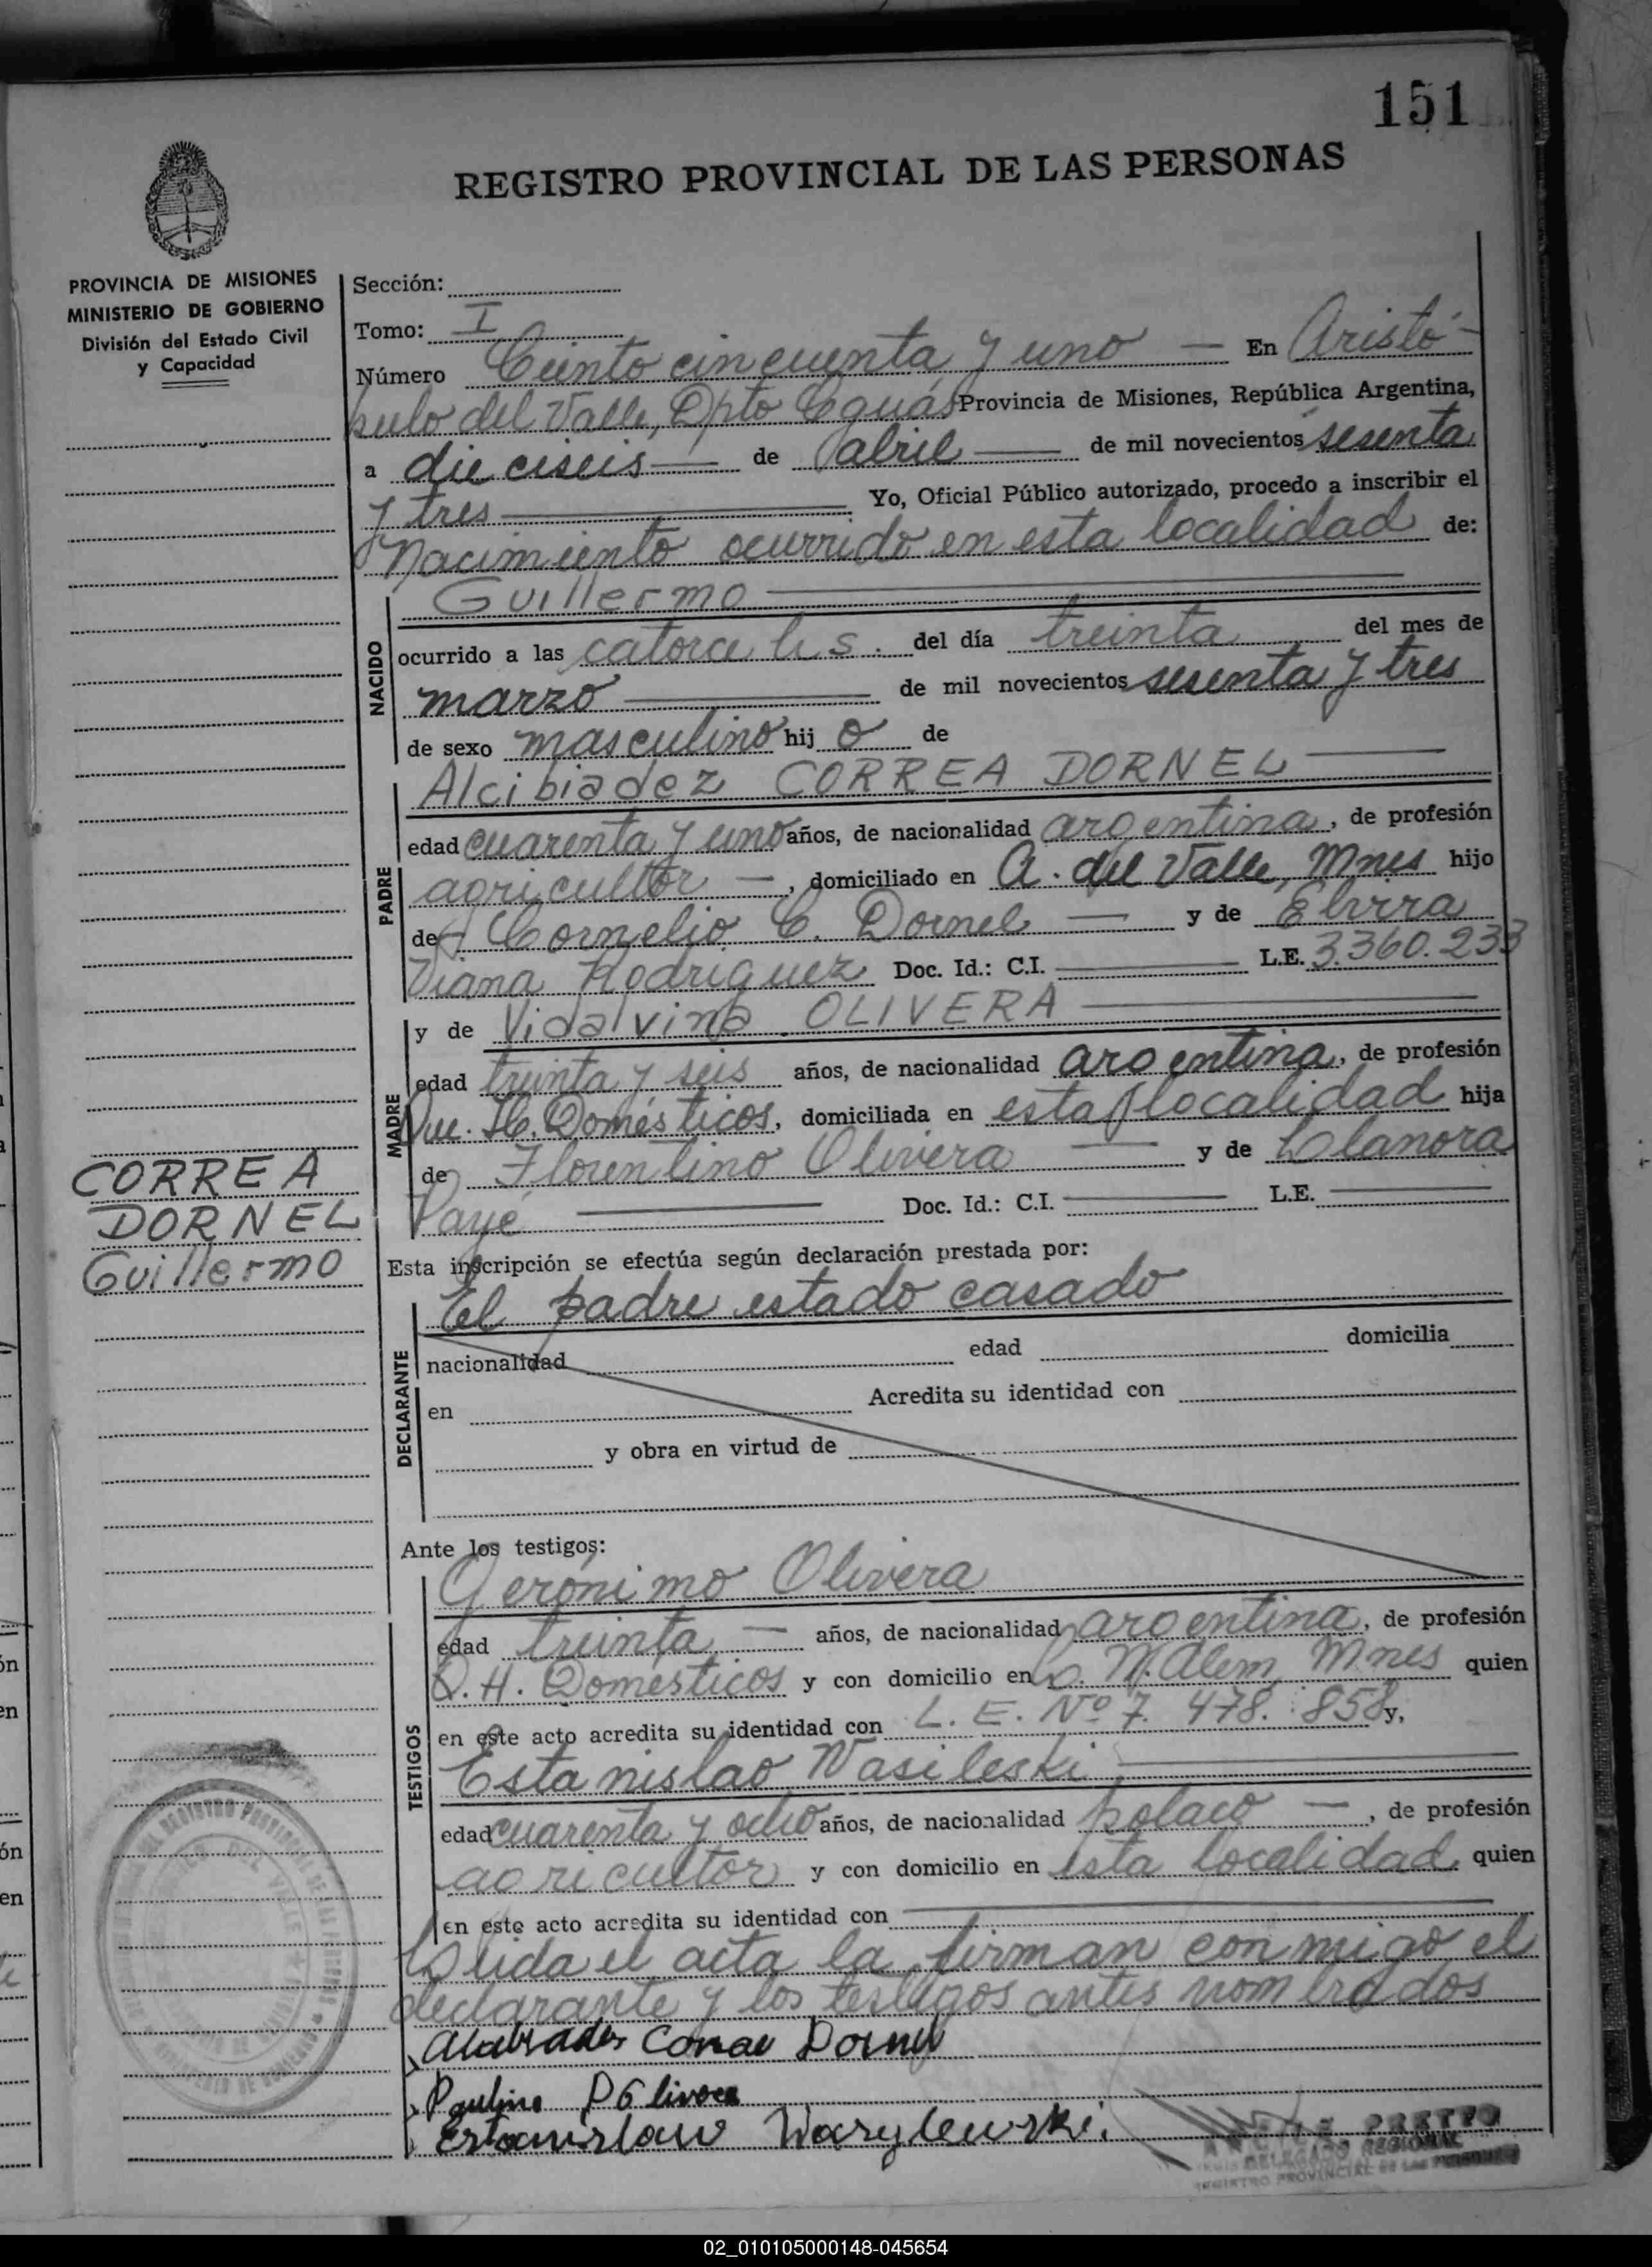 151
REGISTRO PROVINCIAL DE LAS PERSONAS
PROVINCIA DE MISIONES
MINISTERIO DE GOBIERNO
División del Estado Civil
y Capacidad
Sección:
Tomo: I
Número Ciento cincuenta y uno — En Aristó-
bulo del Valle, Dpto Cguás Provincia de Misiones, República Argentina,
a dieciseis — de abril — de mil novecientos sesenta
y tres — Yo, Oficial Público autorizado, procedo a inscribir el
Nacimiento ocurrido en esta localidad de:
NACIDO
Guillermo —
ocurrido a las catorce hs. del día treinta del mes de
marzo — de mil novecientos sesenta y tres
de sexo masculino hij o de
PADRE
Alcibiadez CORREA DORNEL —
edad cuarenta y uno años, de nacionalidad argentina, de profesión
agricultor —, domiciliado en A. del Valle, Mnes hijo
de Cornelio C. Dornel — y de Elvira
Viana Rodriguez Doc. Id.: C.I. — L.E. 3.360.233
MADRE
y de Vidalvina OLIVERA —
edad treinta y seis años, de nacionalidad argentina, de profesión
Que. H. Domésticos, domiciliada en esta localidad hija
de Florentino Olivera — y de Llanora
Payé — Doc. Id.: C.I. — L.E. —
CORREA
DORNEL
Guillermo
Esta inscripción se efectúa según declaración prestada por:
DECLARANTE
El padre estado casado
nacionalidad edad domicilia
en Acredita su identidad con
y obra en virtud de
Ante los testigos:
TESTIGOS
Gerónimo Olivera
edad treinta — años, de nacionalidad argentina, de profesión
Q. H. Domésticos y con domicilio en L. N. Alem, Mnes quien
en este acto acredita su identidad con L. E. Nº 7. 478. 858 y,
Estanislao Wasileski —
edad cuarenta y ocho años, de nacionalidad polaco —, de profesión
agricultor y con domicilio en esta localidad quien
en este acto acredita su identidad con —
Leida el acta la firman conmigo el
declarante y los testigos antes nombrados
Correa Dornel
Estanislaw
PRETTO
DELEGADO REGIONAL
REGISTRO PROVINCIAL DE LAS PERSONAS
02_010105000148-045654